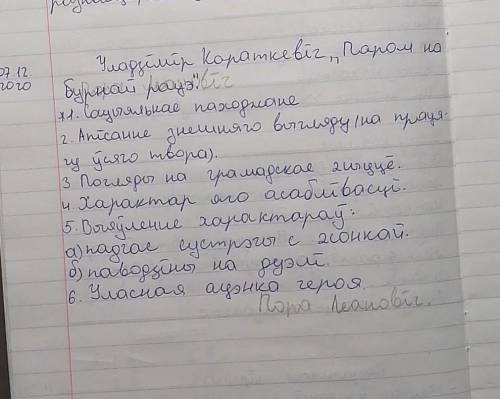 07.12
2020
Уладзімір Караткевіч „Паром на
бурнай рацэ".
*1. Сацыяльнае паходжане
2. Апісанне знешняго выгляду (на праця-
гу ўсяго твора).
3. Погляды на грамадскае жыццё.
4. Характар яго асаблівасці.
5. Выяўленне характараў:
а) падчас сустрэчы с жонкай.
б) паводзіны на дуэлі.
6. Уласная ацэнка героя.
Пора Леановіч.